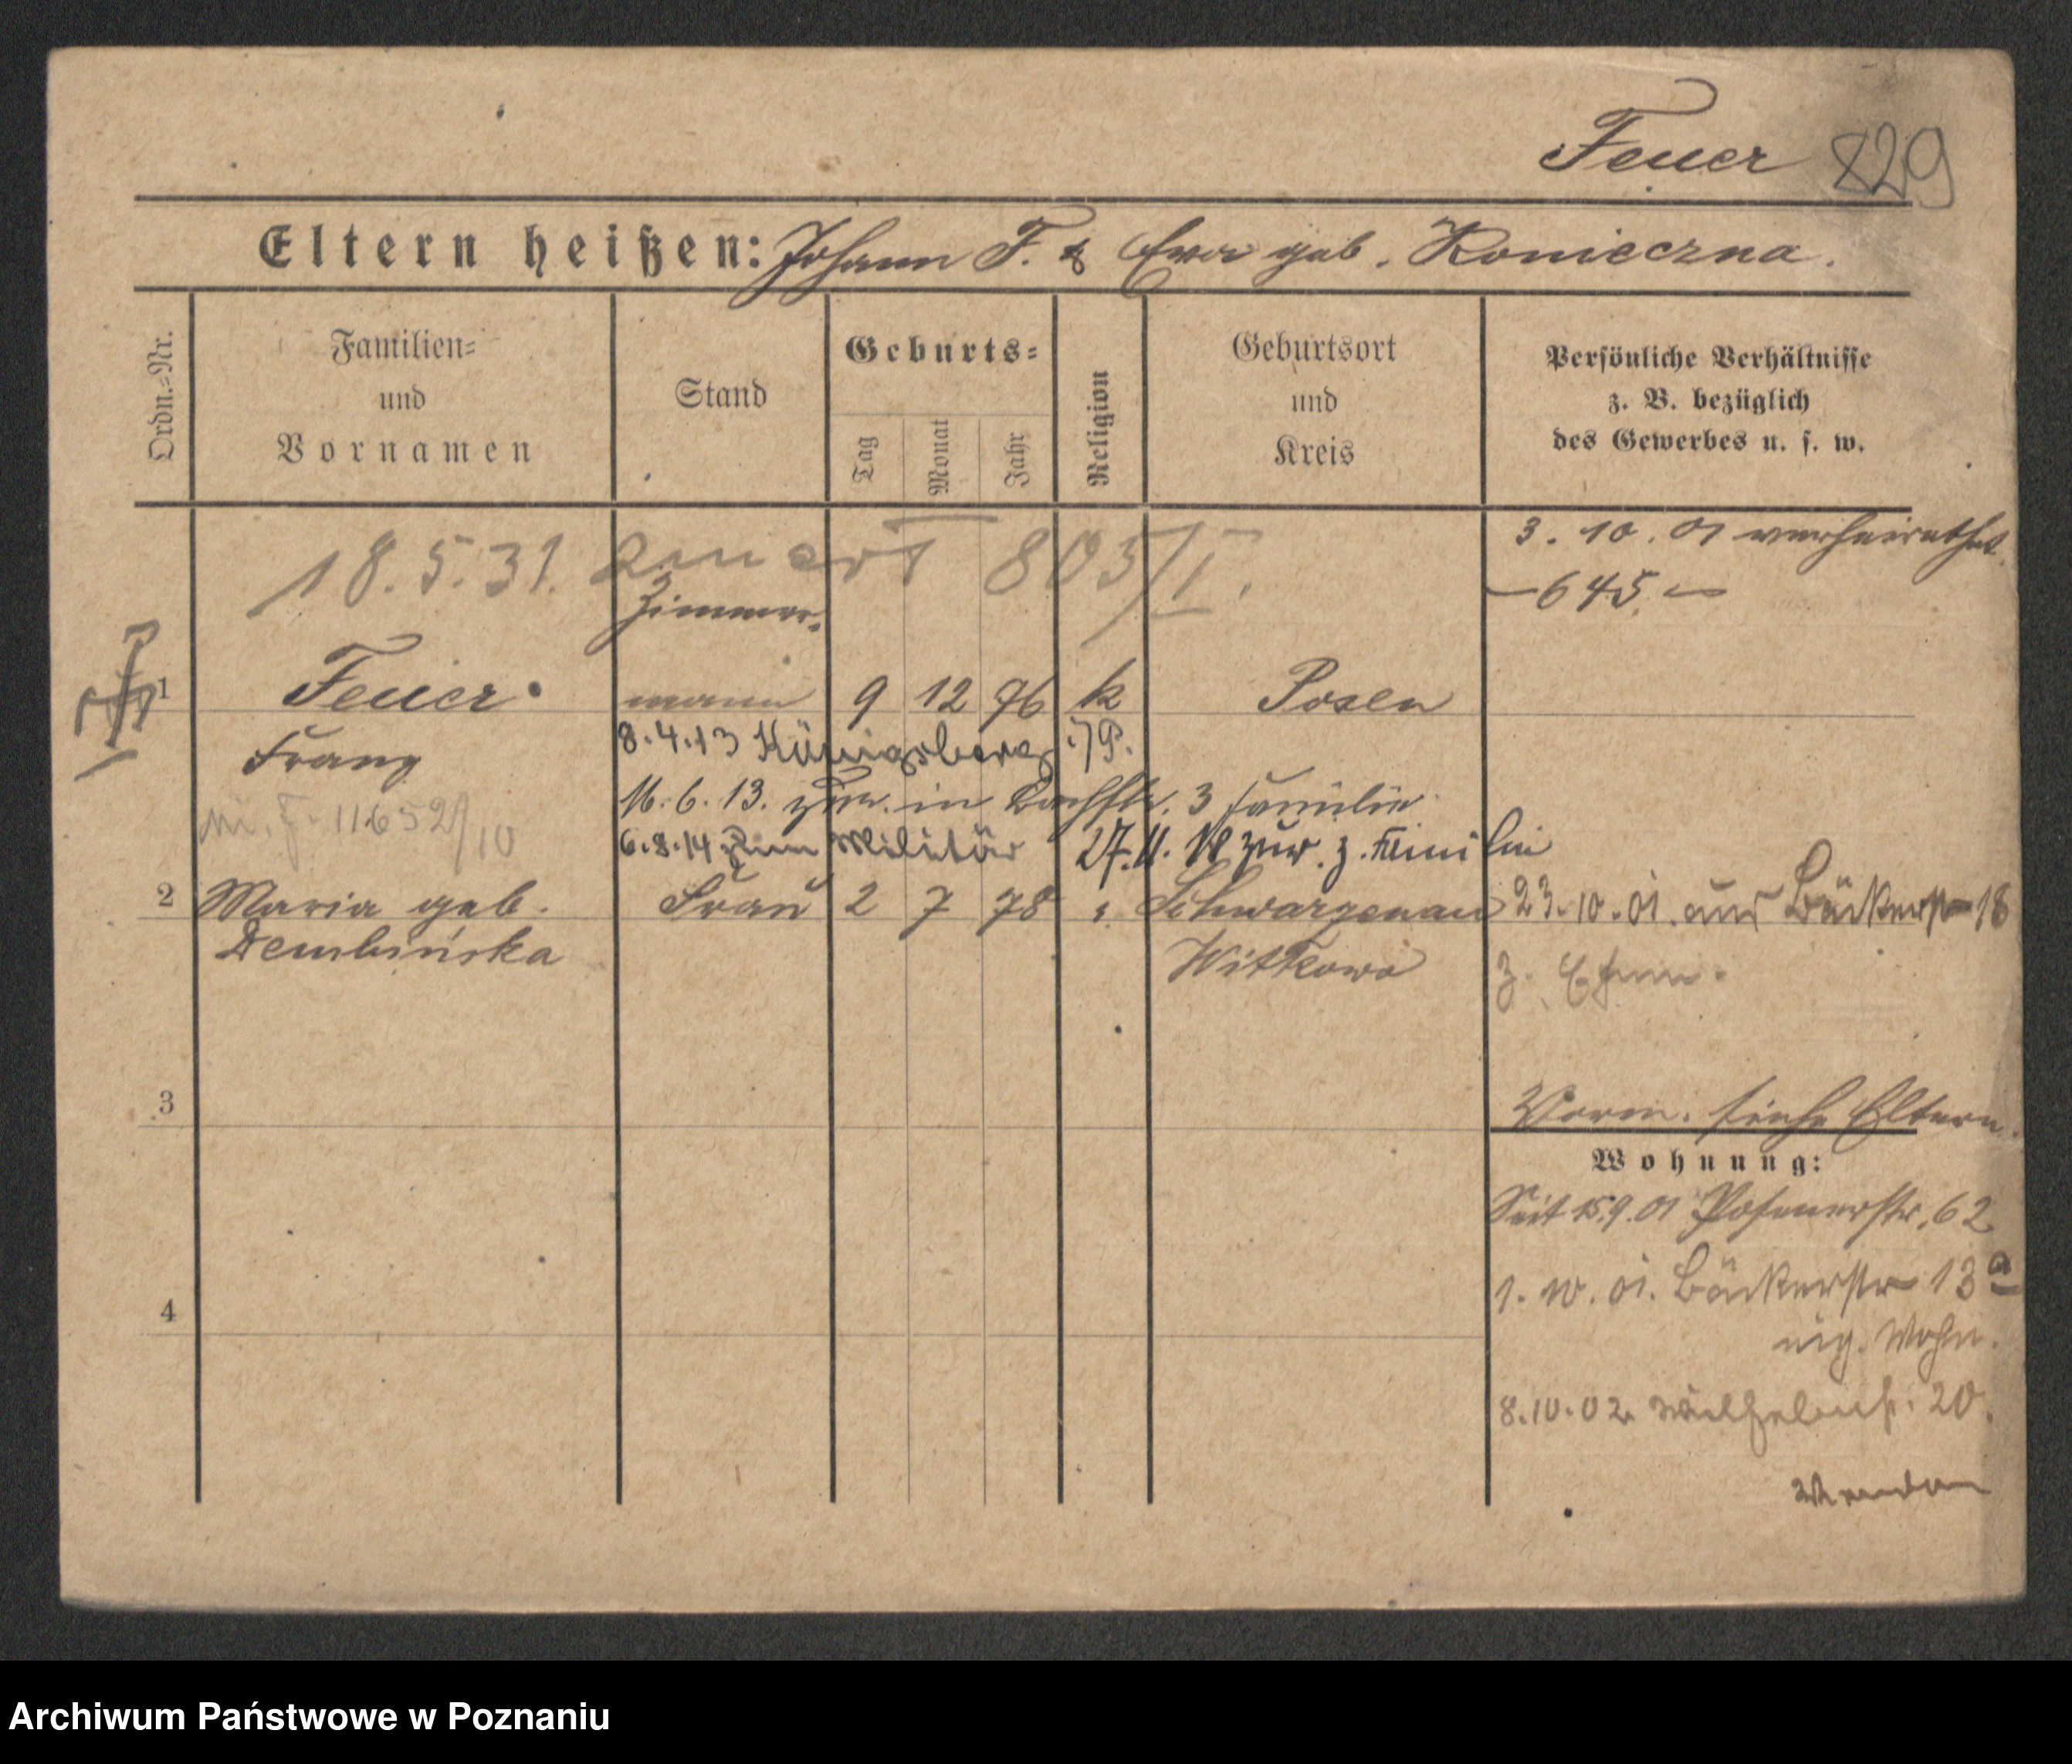 Feuer 829
Eltern heißen: Johann F. & Eva geb. Konieczna.
Ordn.-Nr.
Familien-
und
Vornamen
Stand
Geburts-
Tag
Monat
Jahr
Religion
Geburtsort
und
Kreis
Persönliche Verhältnisse
z. B. bezüglich
des Gewerbes u. s. w.
3. 10. 01 verheirathet.
– 645. –
18.5.31. 805/I.
Zimmer-
1 Feuer mann 9 12 76 k Posen
Franz
8.4.13 Königsberg i/P.
16.6.13. zur. in 3 Familie
6.8.14 zum Militär 27.11.18 zur. z. Familie
11652/10
2 Maria geb. Frau 2 7 78 Schwarzenau
Dembińska Witkowo
23.10.01. aus Bäckerstr 18
z. Ehem.
3
Vorm. siehe Eltern.
Wohnung:
Seit 15.9.01 Posenerstr. 62
1. 10. 01. Bäckerstr 13a
eig. Wohn.
4
8.10.02 Wilhelmstr. 20.
Wenden
Archiwum Państwowe w Poznaniu